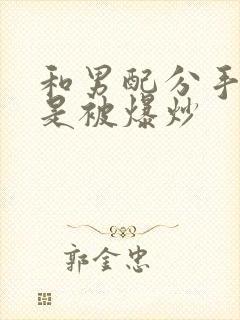 和男配分手
是被爆炒
郭金忠